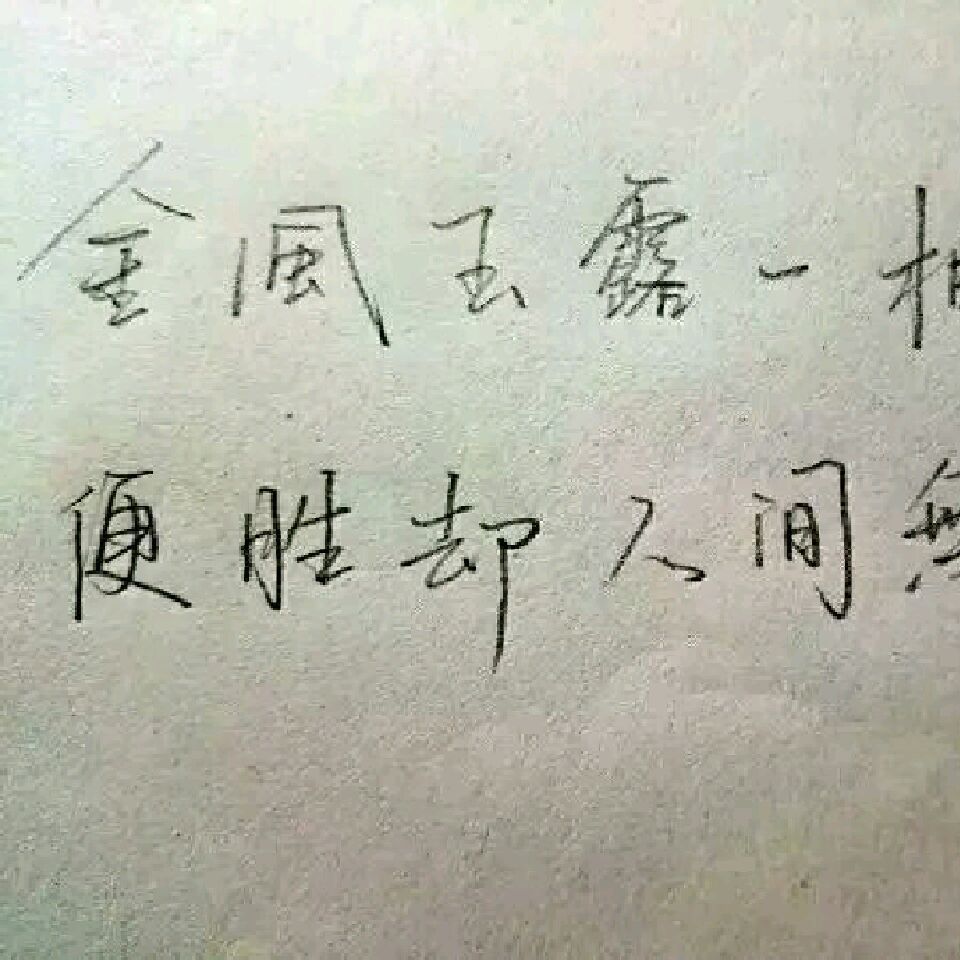 金風玉露一相
便胜却人间無